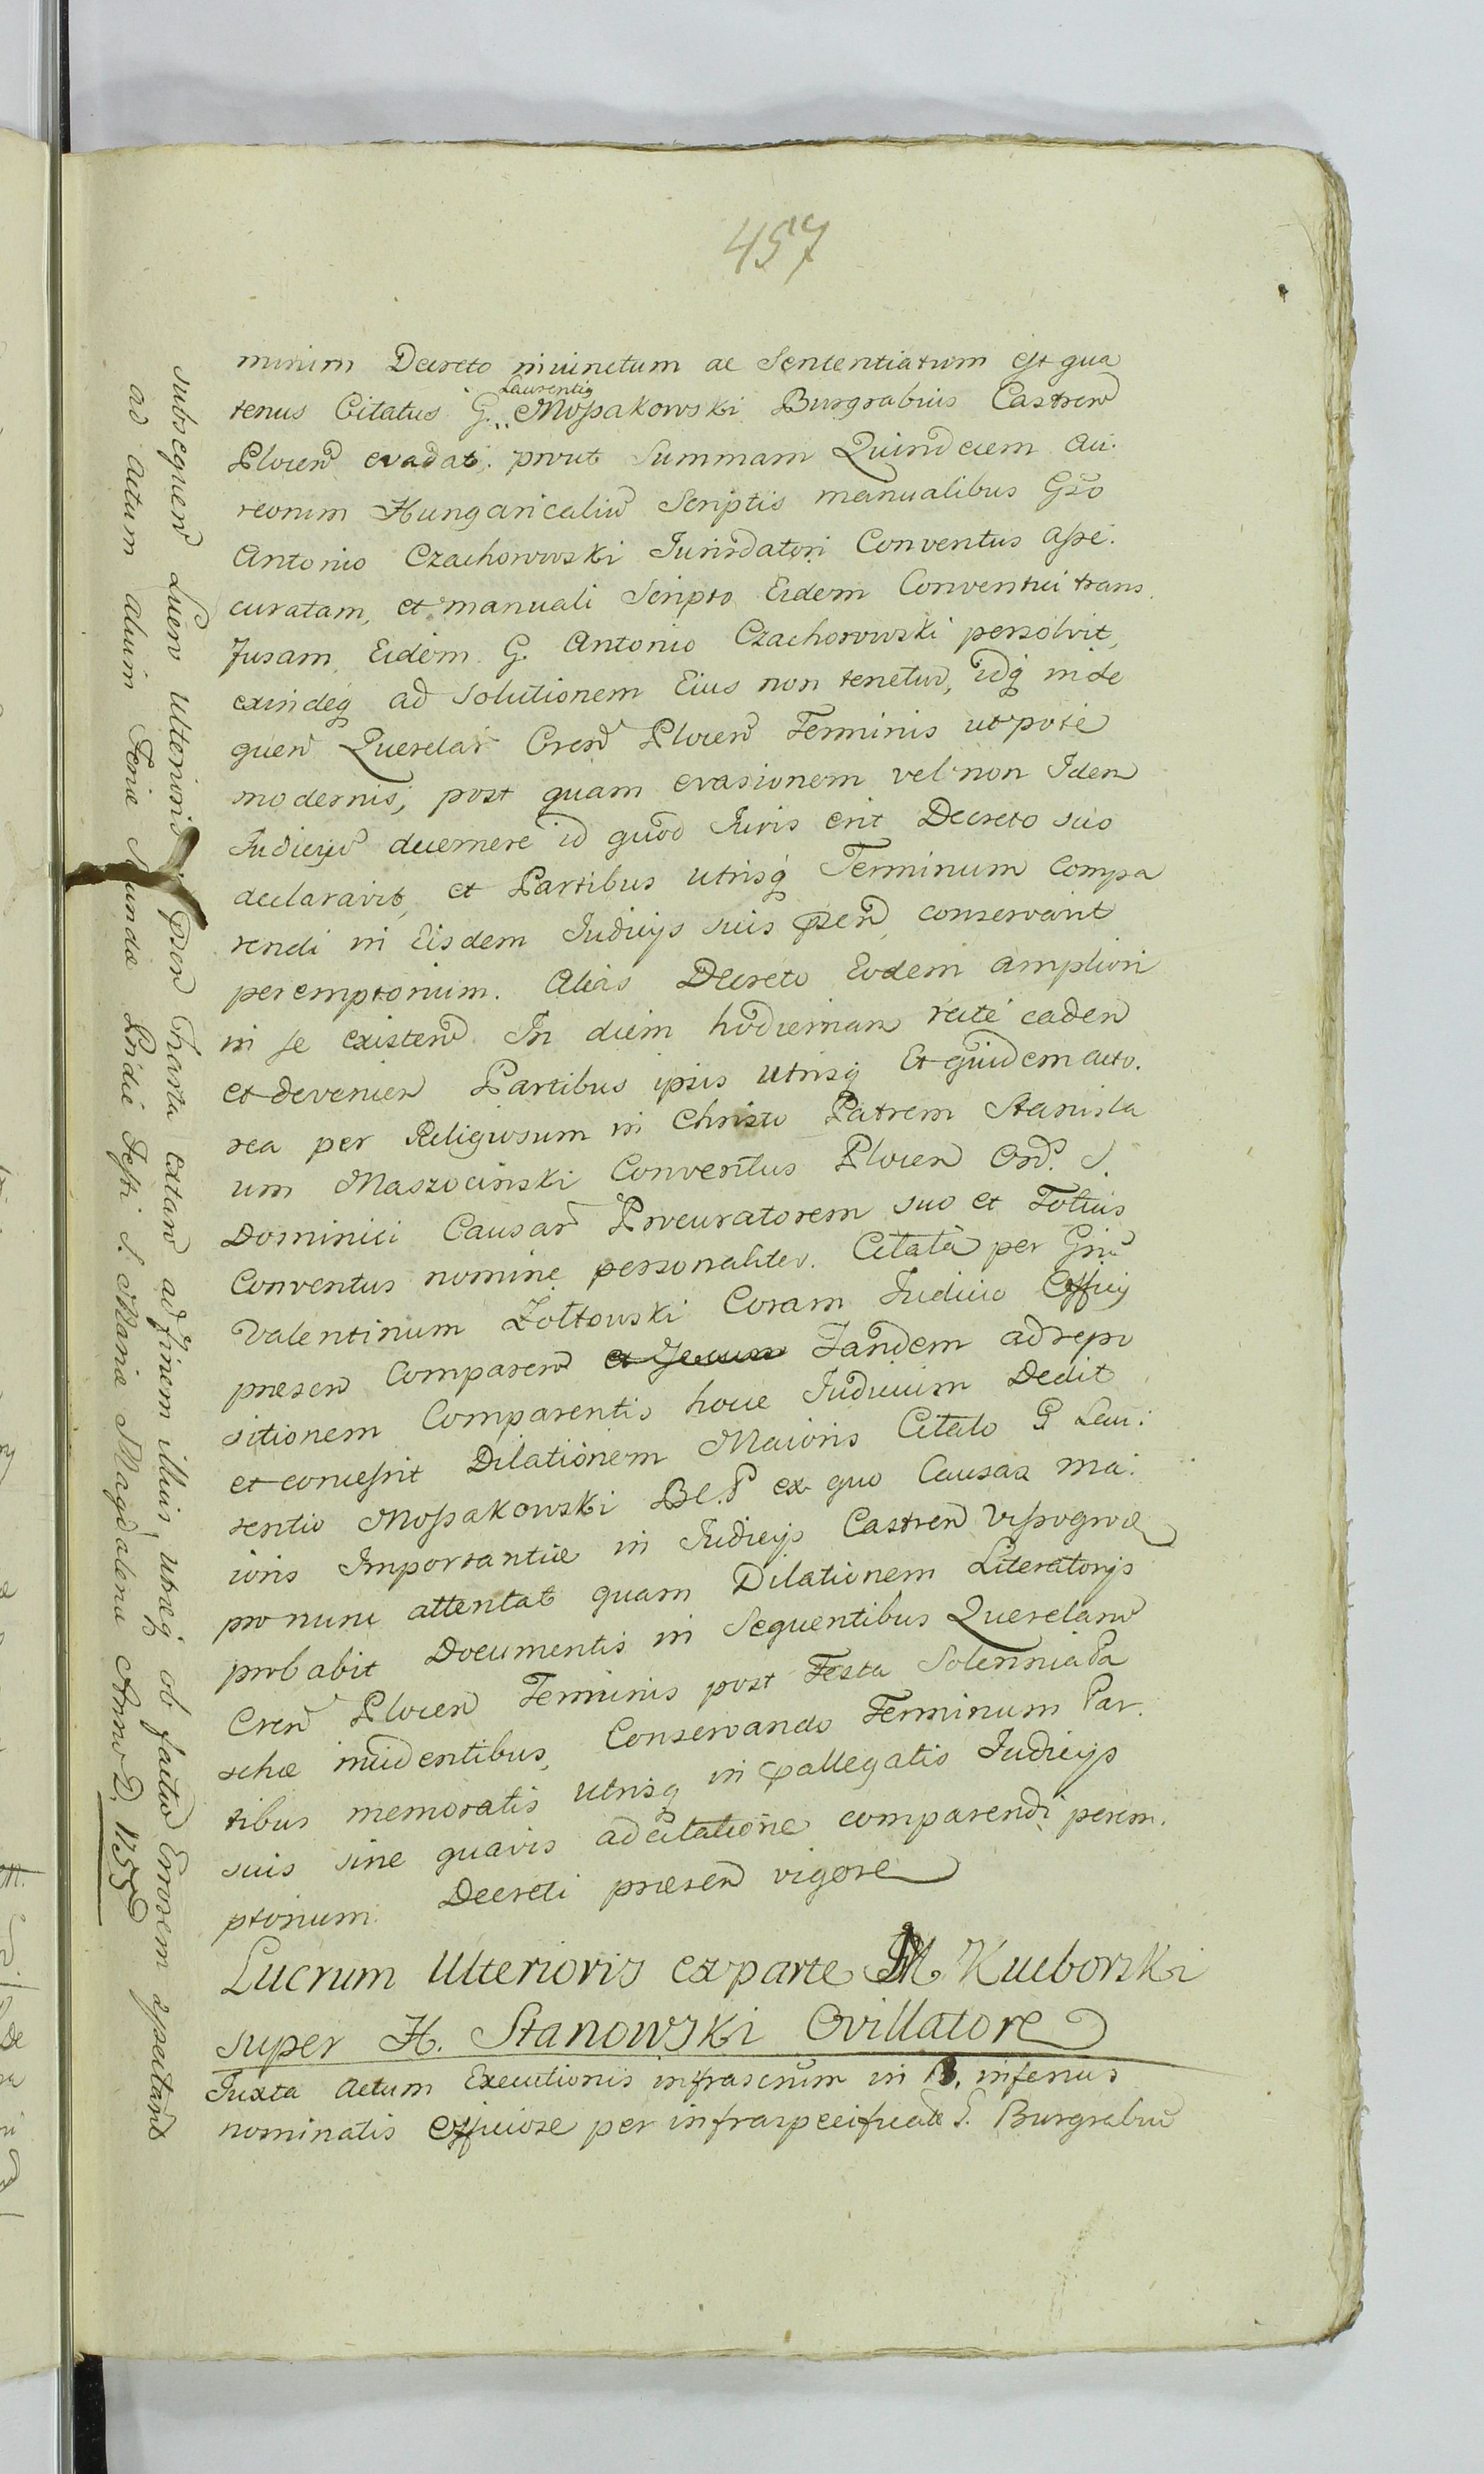 457
minium Decreto iniunctum ac Sententiatum est qua
tenus Citatus G. Laurentig Mossakowski Burgrabius Castren
Plocen evadat. prout Summam Quindecem au.
reorum Hungaricaliu Scriptis manualibus Gso
Antonio Czachorowski Jurisdatori Conventus asse.
curatam, et manuali Scripto Eidem Conventui trans.
fusam Eidem G. Antonio Czachorowski persolvit,
exindeq ad solutionem Eius non tenetur, idq inde
quen Querelar Cren Plocen Terminis utpote
modernis, post quam evasionem vel non Iden
Judiciu decernere id quod Juris erit Decreto suo
declaravit, et Partibus utrisq Terminum Compa
rendi in Eisdem Judicijs suis pen conservavit
peremptorium. Alias Decreto Eodem ampliori
in se existen In diem hodiernam recte caden
et devenien Partibus ipsis utrisq Et quidem acto.
rea per Religiosum in Christo Patrem Stanisla
um Maszocinski Conventus Plocen Ord. S.
Dominici Causar Procuratorem suo et Totius
Conventus nomine personaliter. Citata per Gnu
Valentinum Zołtowski Coram Judicio Officij
presen Comparen Tandem ad repo
sitionem Comparentis hocce Judicium Dedit
et concessit Dilationem Maioris Citato G Lau.
rentio Mossakowski B.C.P ex quo Causas ma.
ioris Importantiæ in Judicijs Castren Vissogroæ
pro nunc attentat quam Dilationem Literatorijs
probabit Documentis in Sequentibus Querelaru
Cren Plocen Terminis post Festa Solennia Pa
schæ incidentibus, Conservando Terminum Par.
tibus memoratis utrisq in pallegatis Judicijs
suis sine quavis adcitatione comparendi perem.
ptorium Decreti præsen vigore
Lucrum Ulterioris exparte M. Kucborski
super H. Stanowski Ovillatore
Juxta Actum Executionis infrascrum in B. inferius
nominatis Officiose per infraspecificat G. Burgrabiu
subsequen Lucro Ulterioris Den Tracta extan ad finem illius, utræq ob factu Errorem spectant
ad Actum aluim Feriæ Secundæ Pridie Festi S. Mariæ Magdalenæ Anno D. 1755